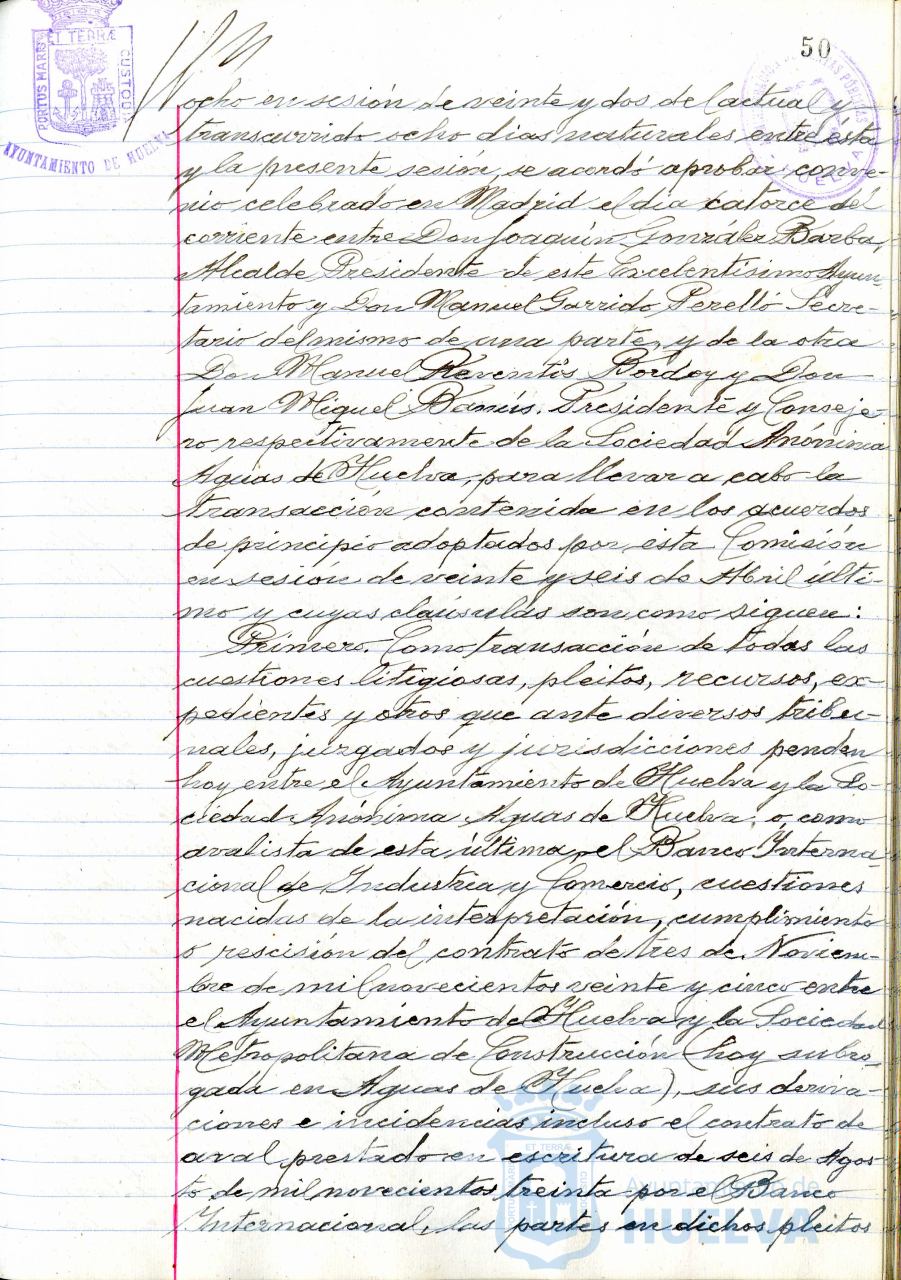 50
PORTUS MARIS ET TERRÆ CUSTODIA
AYUNTAMIENTO DE HUELVA
HUELVA
ocho en sesión de veinte y dos del actual y
transcurrido ocho dias naturales entre ésta
y la presente sesión, se acordó aprobar conve-
nio celebrado en Madrid el dia catorce del
corriente entre Don Joaquín González Barba,
Alcalde Presidente de este Excelentísimo Ayun-
tamiento y Don Manuel Garrido Perelló Secre-
tario del mismo de una parte, y de la otra
Don Manuel Reventós Bordoy y Don
Juan Miguel Banús. Presidente y Conseje-
ro respectivamente de la Sociedad Anónima
Aguas de Huelva, para llevar a cabo la
transacción contenida en los acuerdos
de principio adoptados por esta Comisión
en sesión de veinte y seis de Abril últi-
mo y cuyas claúsulas son como siguen:
Primero. Como transacción de todas las
cuestiones litigiosas, pleitos, recursos, ex-
pedientes y otros que ante diversos tribu-
nales, juzgados y jurisdicciones penden
hoy entre el Ayuntamiento de Huelva y la So-
ciedad Anónima Aguas de Huelva, o como
avalista de esta última, el Banco Interna-
cional de Industria y Comercio, cuestiones
nacidas de la interpretación, cumplimiento
o rescisión del contrato de tres de Noviem-
bre de mil novecientos veinte y cinco entre
el Ayuntamiento de Huelva y la Sociedad
Metropolitana de Construcción (hoy subro-
gada en Aguas de Huelva), sus deriva-
ciones e incidencias incluso el contrato de
aval prestado en escritura de seis de Agos-
to de mil novecientos treinta por el Banco
Internacional, las partes en dichos pleitos
Ayuntamiento de
HUELVA